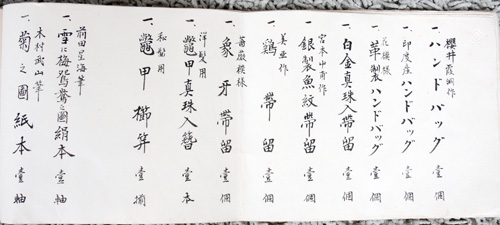 櫻井霞洞作
一、ハンドバッグ 壹個
一、印度産ハンドバッグ 壹個
花模様
一、革製ハンドバッグ 壹個
一、白金真珠入帯留 壹個
宮本 作
一、銀製魚紋帯留 壹個
美亜作
一、鶏帯留 壹個
薔薇模様
一、象牙帯留 壹個
洋髪用
一、鼈甲真珠入簪 壹本
和髪用
一、鼈甲櫛笄 壹揃
前田呈海筆
一、雪に梅鴛鴦之圖絹本 壹軸
木村武山筆
一、菊之圖紙本 壹軸